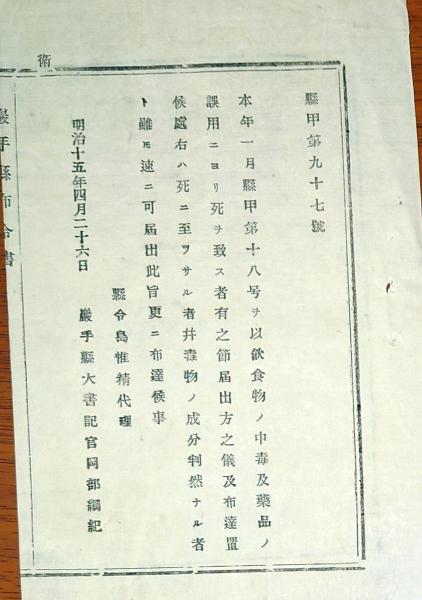 衛
縣甲第九十七號
本年一月縣甲第十八号ヲ以飲食物ノ中毒及藥品ノ
誤用ニヨリ死ヲ致ス者有之節届出方之儀及布達置
候處右ハ死ニ至ラサル者并毒物ノ成分判然ナル者
ト雖モ速ニ可届出此旨更ニ布達候事
縣令島惟精代理
明治十五年四月二十六日 巖手縣大書記官岡部綱紀
巖手縣布令書